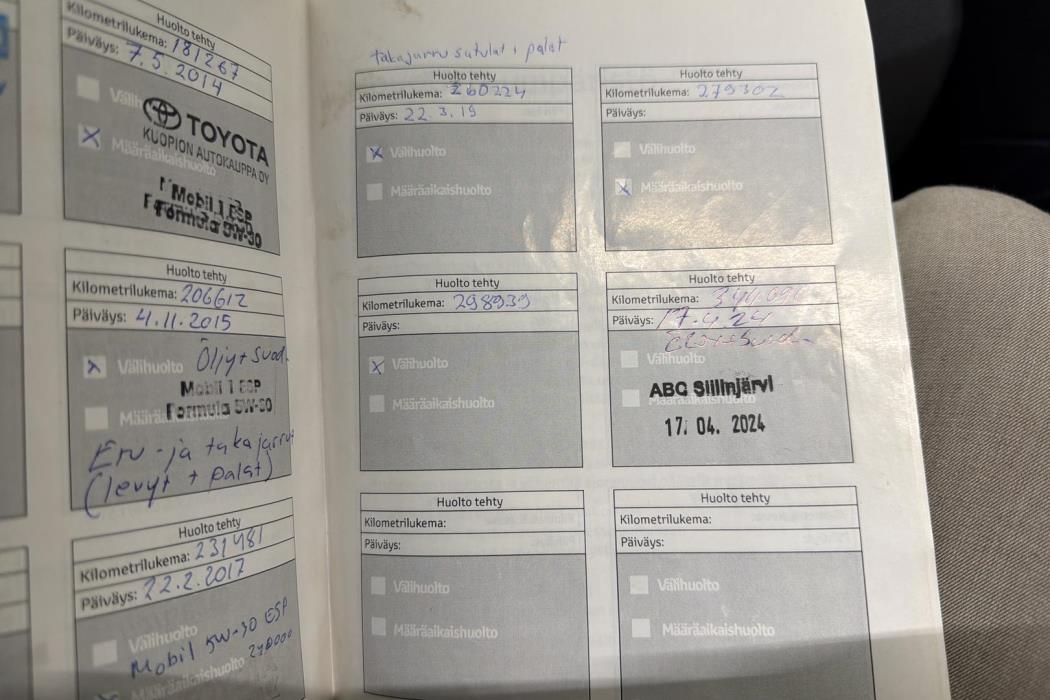 Huolto tehty
Kilometrilukema: 181267
Päiväys: 7.5.2014
Välihuolto
Määräaikaishuolto
TOYOTA
KUOPION AUTOKAUPPA OY
Mobil 1 ESP
Formula 5W-30
Huolto tehty
Kilometrilukema: 206612
Päiväys: 4.11.2015
Välihuolto Öljyt + suod.
Mobil 1 ESP
Formula 5W-30
Etu - ja takajarrut
(levyt + palat)
Huolto tehty
Kilometrilukema: 231481
Päiväys: 22.2.2017
Välihuolto
Mobil 5W-30 ESP
Määräaikaishuolto
takajarru satulat + palat
Huolto tehty
Kilometrilukema: 260224
Päiväys: 22.3.19
Välihuolto
Määräaikaishuolto
Huolto tehty
Kilometrilukema: 279302
Päiväys:
Välihuolto
Määräaikaishuolto
Huolto tehty
Kilometrilukema: 298939
Päiväys:
Välihuolto
Määräaikaishuolto
Huolto tehty
Kilometrilukema:
Päiväys: 17.4.24
Välihuolto
Määräaikaishuolto
ABC Siilinjärvi
17. 04. 2024
Huolto tehty
Kilometrilukema:
Päiväys:
Välihuolto
Määräaikaishuolto
Huolto tehty
Kilometrilukema:
Päiväys:
Välihuolto
Määräaikaishuolto